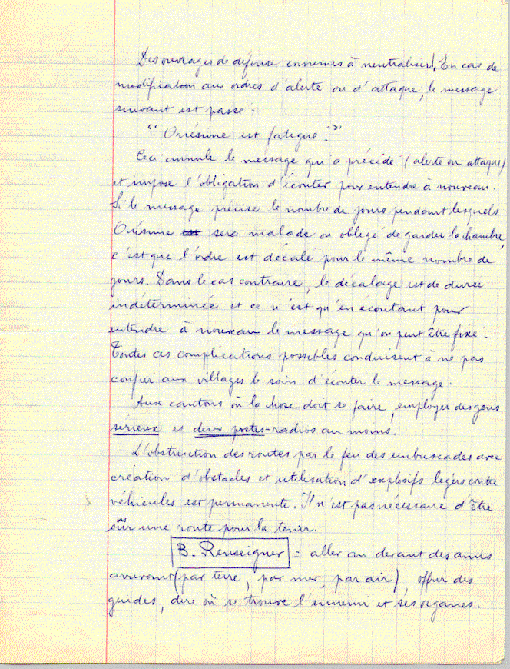 Des ouvrages de défense ennemies à neutraliser. En cas de
modification aux ordres d'alerte ou d'attaque, le message
suivant est passé :
"Onésime est fatigué."
Ceci annule le message qui a précédé (alerte ou attaque)
et impose l'obligation d'écouter pour entendre à nouveau.
Si le message précise le nombre de jours pendant lesquels
Onésime sera malade ou obligé de garder la chambre,
c'est que l'ordre est décalé pour le même nombre de
jours. Dans le cas contraire, le décalage est de durée
indéterminée et ce n'est qu'en écoutant pour
entendre à nouveau le message qu'on peut être fixé.
Toutes ces complications possibles conduisent à ne pas
confier aux villages le soin d'écouter le message.
Aux cantons où la chose doit se faire, employer des gens
sérieux et deux postes-radios au moins.
L'obstruction des routes par le feu des embuscades avec
création d'obstacles et utilisation d'explosifs légers contre
véhicules est permanente. Il n'est pas nécessaire d'être
sur une route pour la tenir.
B. Renseigner = aller au devant des amis
arrivant (par terre, par mer, par air), offrir des
guides, dire où se trouve l'ennemi et ses organes.